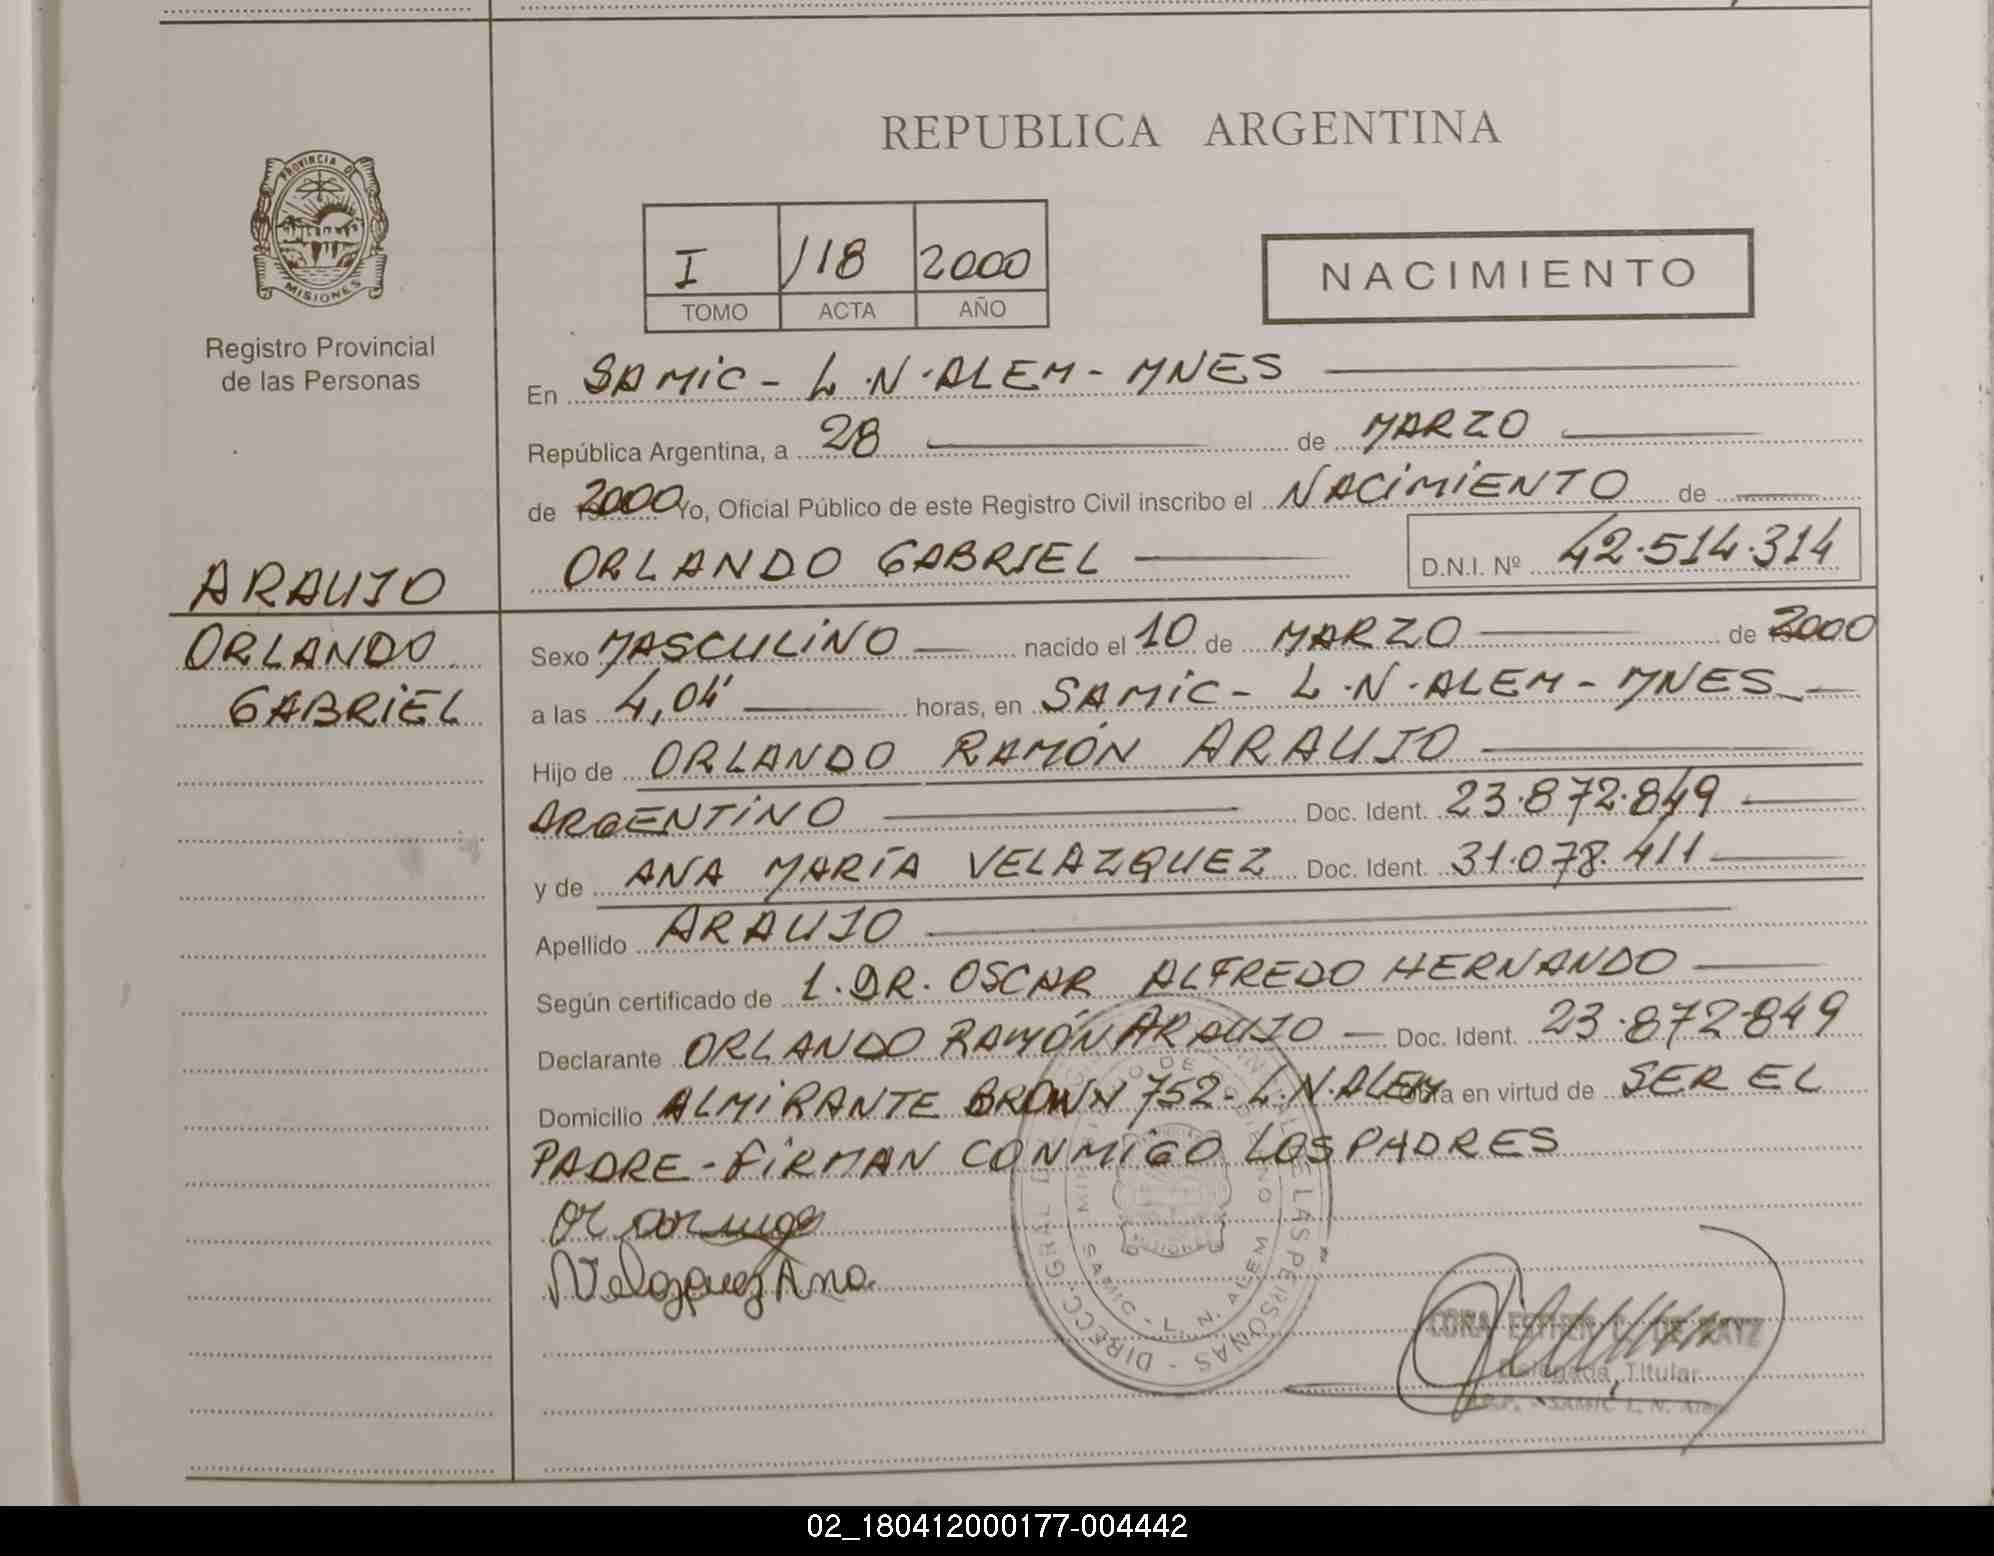 REPUBLICA ARGENTINA
PROVINCIA DE
MISIONES
Registro Provincial
de las Personas
I 118 2000
TOMO ACTA AÑO
NACIMIENTO
En SAMIC - L.N.ALEM - MNES
República Argentina, a 28 de MARZO
de 2000 Yo, Oficial Público de este Registro Civil inscribo el NACIMIENTO de
ORLANDO GABRIEL D.N.I. Nº 42.514.314
ARAUJO
ORLANDO
GABRIEL
Sexo MASCULINO nacido el 10 de MARZO de 2000
a las 4,04' horas, en SAMIC - L.N.ALEM - MNES
Hijo de ORLANDO RAMÓN ARAUJO
ARGENTINO Doc. Ident. 23.872.849
y de ANA MARÍA VELAZQUEZ Doc. Ident. 31.078.411
Apellido ARAUJO
Según certificado de 1. DR. OSCAR ALFREDO HERNANDO
Declarante ORLANDO RAMÓN ARAUJO Doc. Ident. 23.872.849
Domicilio ALMIRANTE BROWN 752 - L.N.ALEM Obra en virtud de SER EL
PADRE - FIRMAN CONMIGO LOS PADRES
Velazquez Ana
DIRECC. GRAL. DE LAS PERSONAS
SAMIC - L. N. ALEM
ESTHER C. DE
Delegada Titular
SAMIC L. N. Alem
02_180412000177-004442